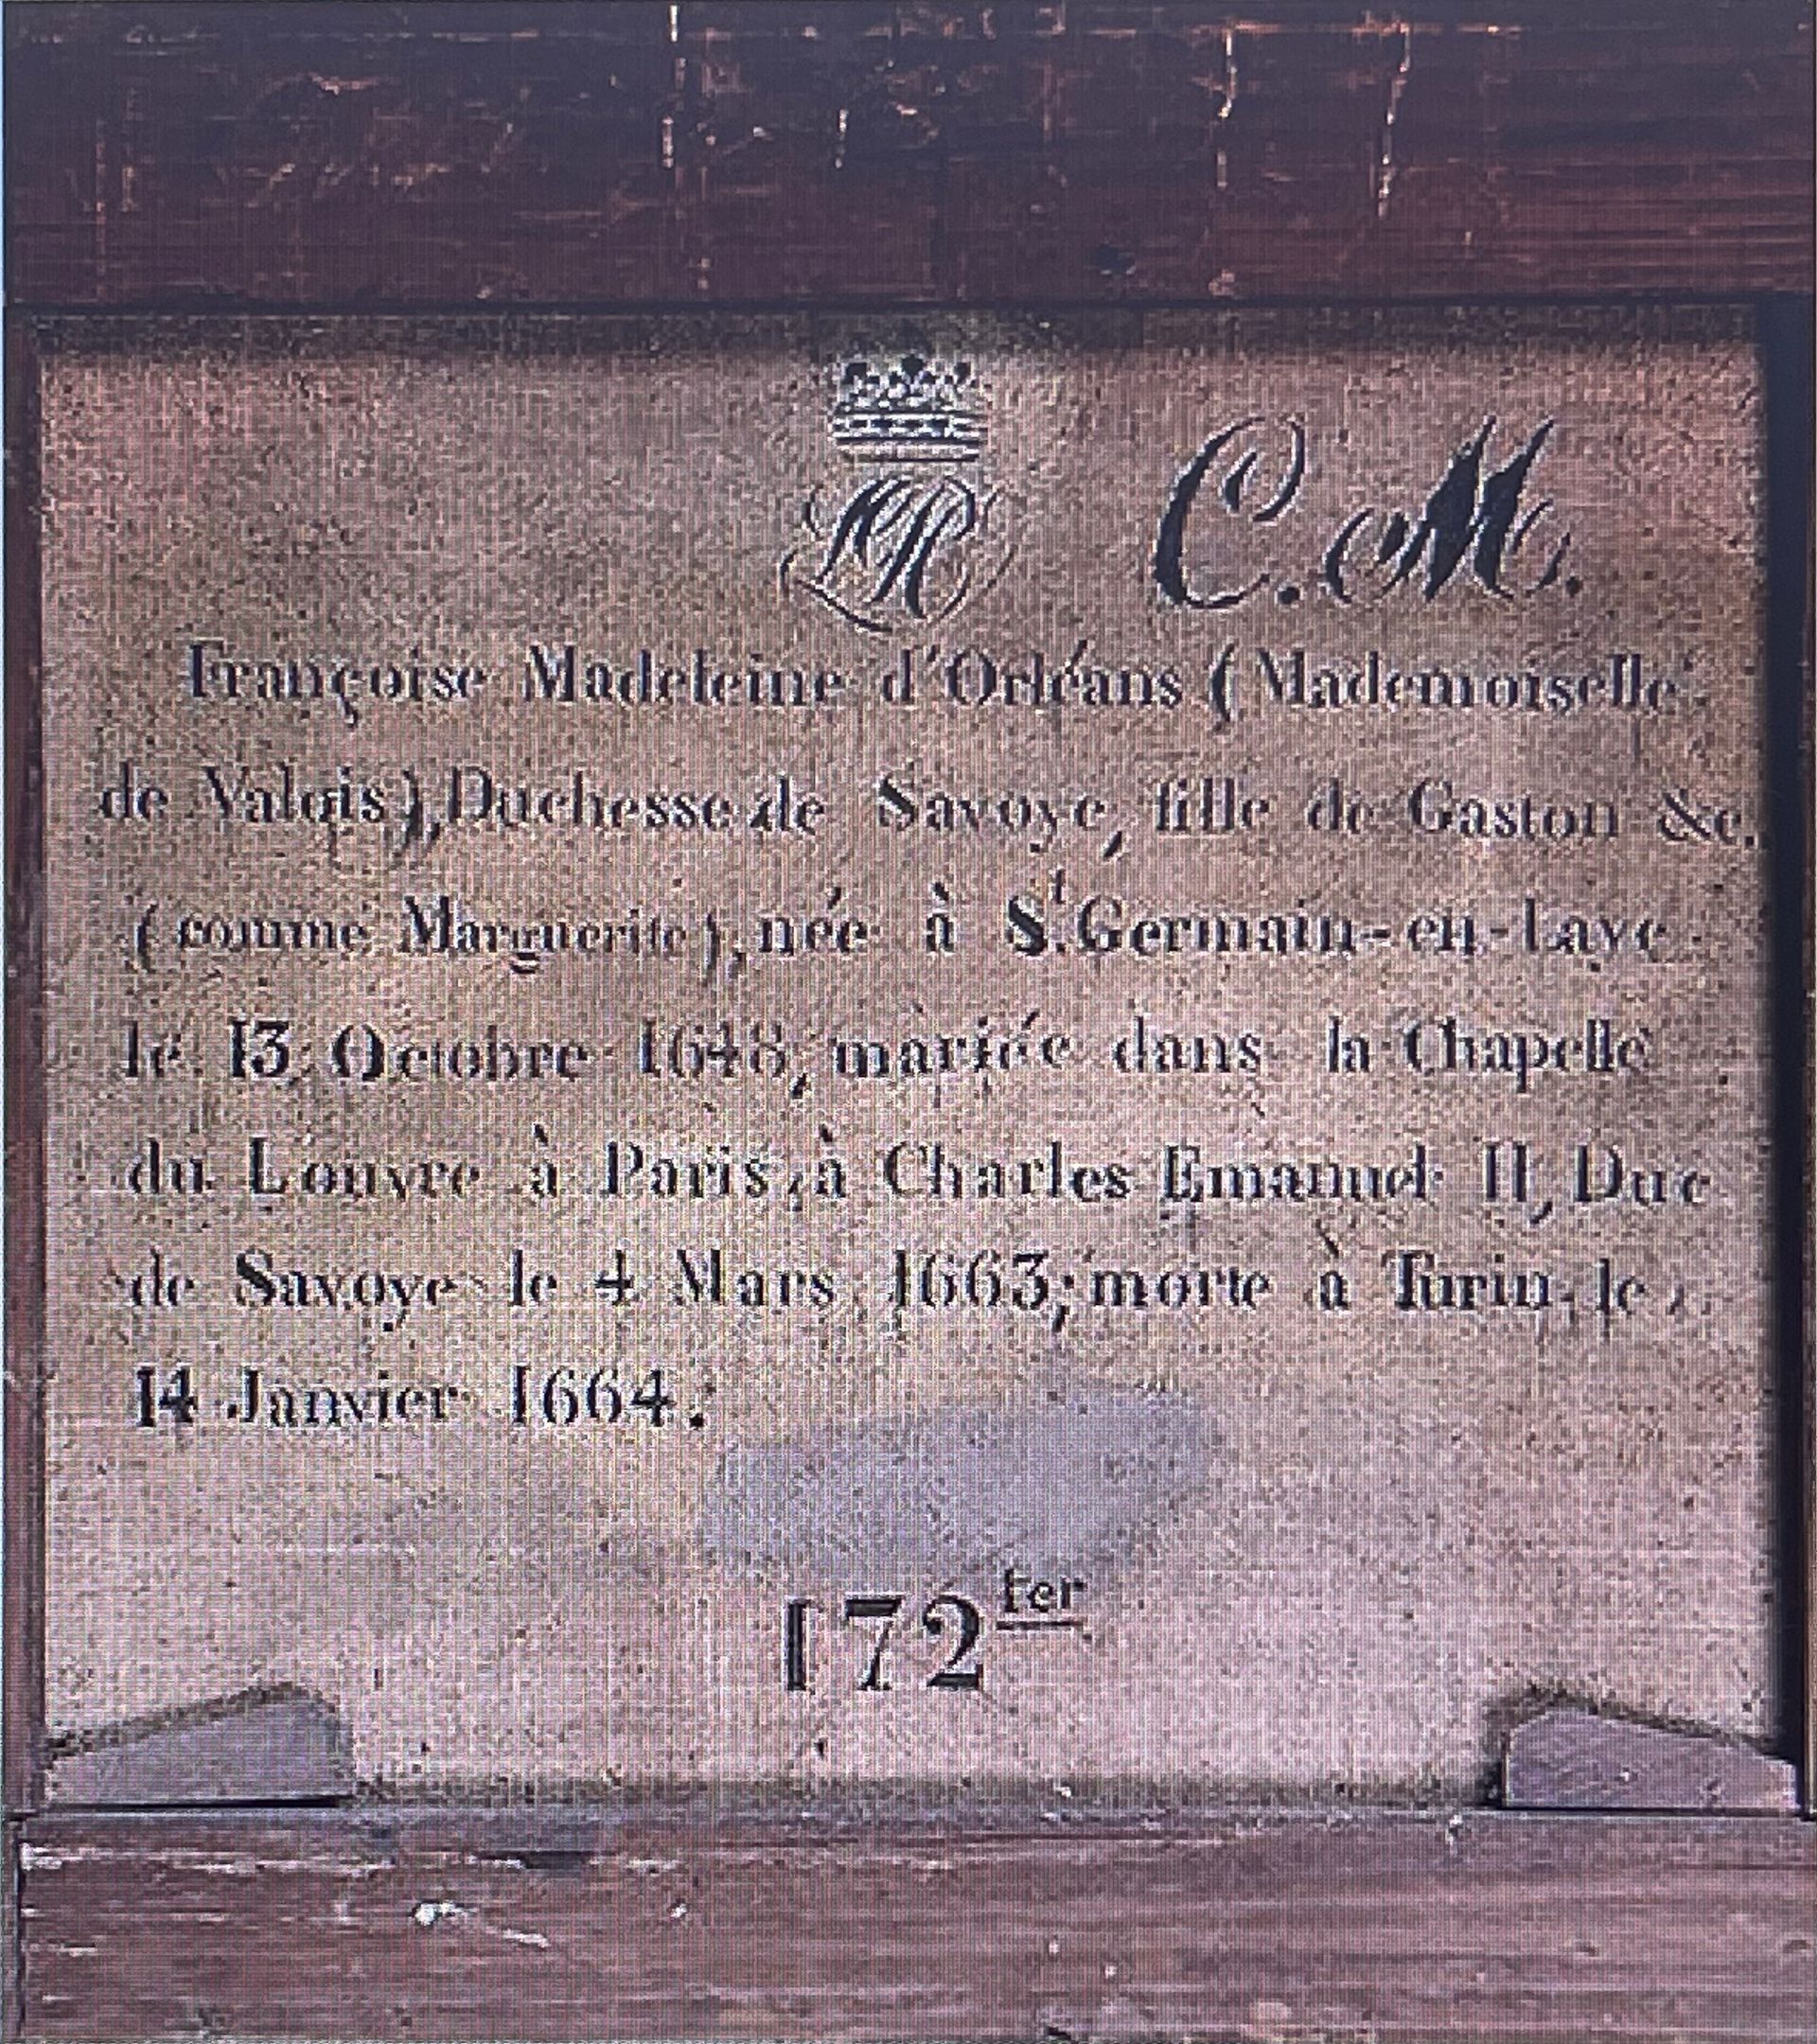 LP C. M.
Françoise Madeleine d'Orléans (Mademoiselle
de Valois), Duchesse de Savoye, fille de Gaston &c.
(comme Marguerite), née à St. Germain-en-Laye
le 13 Octobre 1648, mariée dans la Chapelle
du Louvre à Paris, à Charles Emanuel II, Duc
de Savoye le 4 Mars 1663; morte à Turin le
14 Janvier 1664.
172 ter